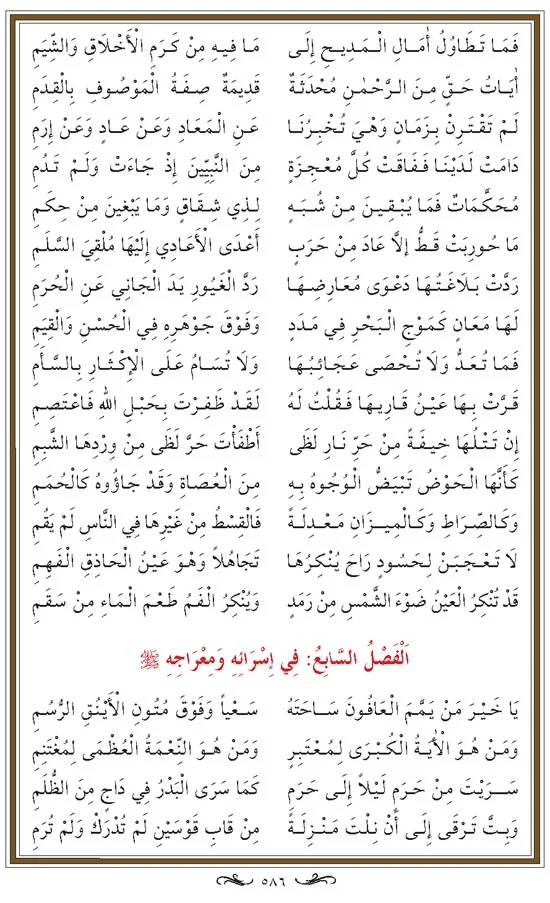 فَمَا تَطَاوُلُ أٰمَالِ الْمَدِيحِ إِلَى مَا فِيهِ مِنْ كَرَمِ الْأَخْلَاقِ وَالشِّيَمِ
أٰيَاتُ حَقٍّ مِنَ الرَّحْمٰنِ مُحْدَثَةٌ قَدِيمَةٌ صِفَةُ الْمَوْصُوفِ بِالْقِدَمِ
لَمْ تَقْتَرِنْ بِزَمَانٍ وَهِيَ تُخْبِرُنَا عَنِ الْمَعَادِ وَعَنْ عَادٍ وَعَنْ إِرَمِ
دَامَتْ لَدَيْنَا فَفَاقَتْ كُلَّ مُعْجِزَةٍ مِنَ النَّبِيِّينَ إِذْ جَاءَتْ وَلَمْ تَدُمِ
مُحَكَّمَاتٌ فَمَا يُبْقِينَ مِنْ شُبَهٍ لِذِي شِقَاقٍ وَمَا يَبْغِينَ مِنْ حِكَمِ
مَا حُورِبَتْ قَطُّ إِلَّا عَادَ مِنْ حَرَبٍ أَعْدَى الْأَعَادِي إِلَيْهَا مُلْقِيَ السَّلَمِ
رَدَّتْ بَلَاغَتُهَا دَعْوَى مُعَارِضِهَا رَدَّ الْغَيُورِ يَدَ الْجَانِي عَنِ الْحُرَمِ
لَهَا مَعَانٍ كَمَوْجِ الْبَحْرِ فِي مَدَدٍ وَفَوْقَ جَوْهَرِهِ فِي الْحُسْنِ وَالْقِيَمِ
فَمَا تُعَدُّ وَلَا تُحْصَى عَجَائِبُهَا وَلَا تُسَامُ عَلَى الْإِكْثَارِ بِالسَّأَمِ
قَرَّتْ بِهَا عَيْنُ قَارِيهَا فَقُلْتُ لَهُ لَقَدْ ظَفِرْتَ بِحَبْلِ اللّٰهِ فَاعْتَصِمِ
إِنْ تَتْلُهَا خِيفَةً مِنْ حَرِّ نَارِ لَظَى أَطْفَأْتَ حَرَّ لَظَى مِنْ وِرْدِهَا الشَّبِمِ
كَأَنَّهَا الْحَوْضُ تَبْيَضُّ الْوُجُوهُ بِهِ مِنَ الْعُصَاةِ وَقَدْ جَاؤُوهُ كَالْحُمَمِ
وَكَالصِّرَاطِ وَكَالْمِيزَانِ مَعْدِلَةً فَالْقِسْطُ مِنْ غَيْرِهَا فِي النَّاسِ لَمْ يَقُمِ
لَا تَعْجَبَنْ لِحَسُودٍ رَاحَ يُنْكِرُهَا تَجَاهُلًا وَهْوَ عَيْنُ الْحَاذِقِ الْفَهِمِ
قَدْ تُنْكِرُ الْعَيْنُ ضَوْءَ الشَّمْسِ مِنْ رَمَدٍ وَيُنْكِرُ الْفَمُ طَعْمَ الْمَاءِ مِنْ سَقَمِ
اَلْفَصْلُ السَّابِعُ: فِي إِسْرَائِهِ وَمِعْرَاجِهِ ﷺ
يَا خَيْرَ مَنْ يَمَّمَ الْعَافُونَ سَاحَتَهُ سَعْيًا وَفَوْقَ مُتُونِ الْأَيْنُقِ الرُّسُمِ
وَمَنْ هُوَ الْأٰيَةُ الْكُبْرَى لِمُعْتَبِرٍ وَمَنْ هُوَ النِّعْمَةُ الْعُظْمَى لِمُغْتَنِمِ
سَرَيْتَ مِنْ حَرَمٍ لَيْلًا إِلَى حَرَمٍ كَمَا سَرَى الْبَدْرُ فِي دَاجٍ مِنَ الظُّلَمِ
وَبِتَّ تَرْقَى إِلَى أَنْ نِلْتَ مَنْزِلَةً مِنْ قَابِ قَوْسَيْنِ لَمْ تُدْرَكْ وَلَمْ تُرَمِ
٥٨٦